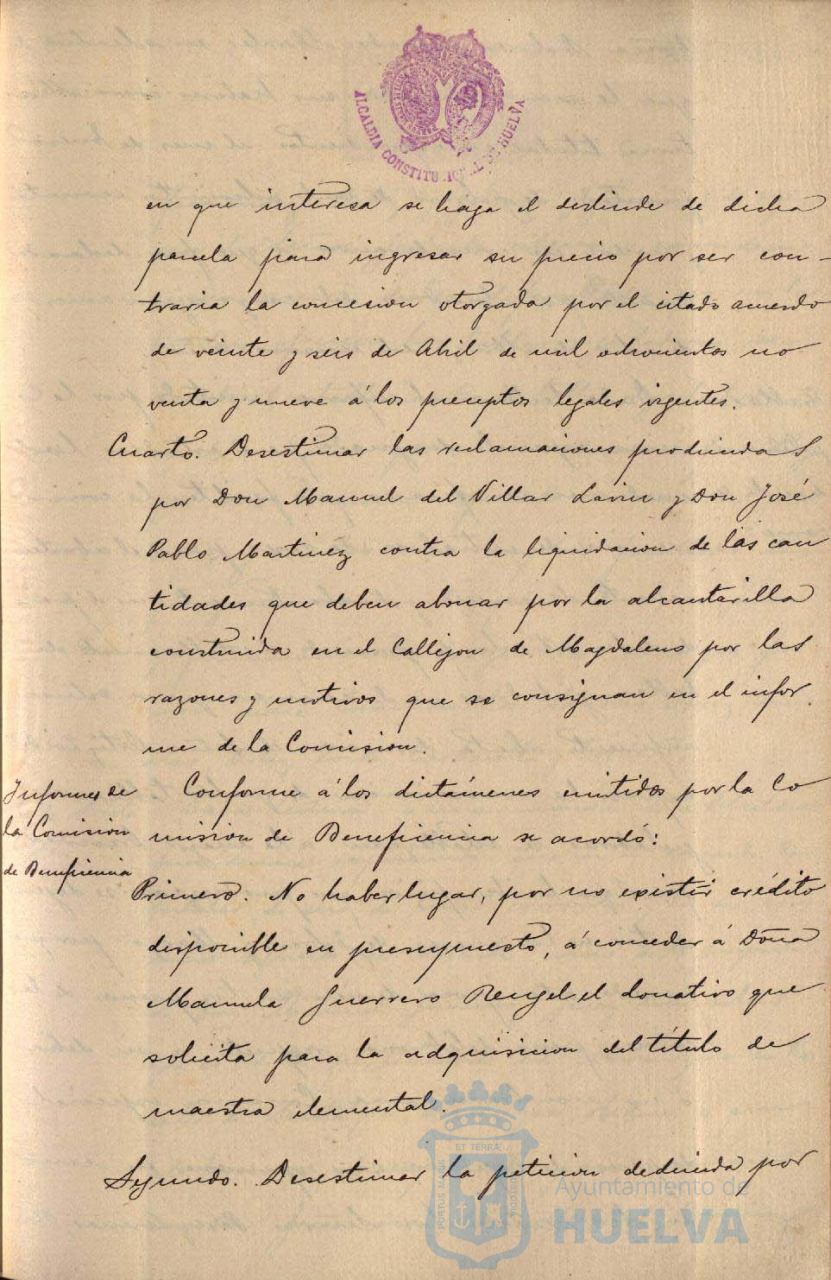 ALCALDIA CONSTITUCIONAL DE HUELVA
en que interesa se haga el deslinde de dicha
parcela para ingresar su precio por ser con-
traria la concesion otorgada por el citado acuerdo
de veinte y seis de Abril de mil ochocientos no
venta y nueve á los preceptos legales vigentes.
Cuarto. Desestimar las reclamaciones producidas
por Don Manuel del Villar Lavin y Don José
Pablo Martinez contra la liquidacion de las can
tidades que deben abonar por la alcantarilla
construida en el Callejon de Magdaleno por las
razones y motivos que se consignan en el infor
me de la Comision.
Informes de
la Comision
de Beneficencia
Conforme á los dictámenes emitidos por la Co
mision de Beneficencia se acordó:
Primero. No haber lugar, por no existir crédito
disponible en presupuesto, á conceder á Doña
Manuela Guerrero Rengel el donativo que
solicita para la adquisicion del título de
maestra elemental.
Segundo. Desestimar la peticion deducida por
ET TERRAE
Ayuntamiento de
HUELVA